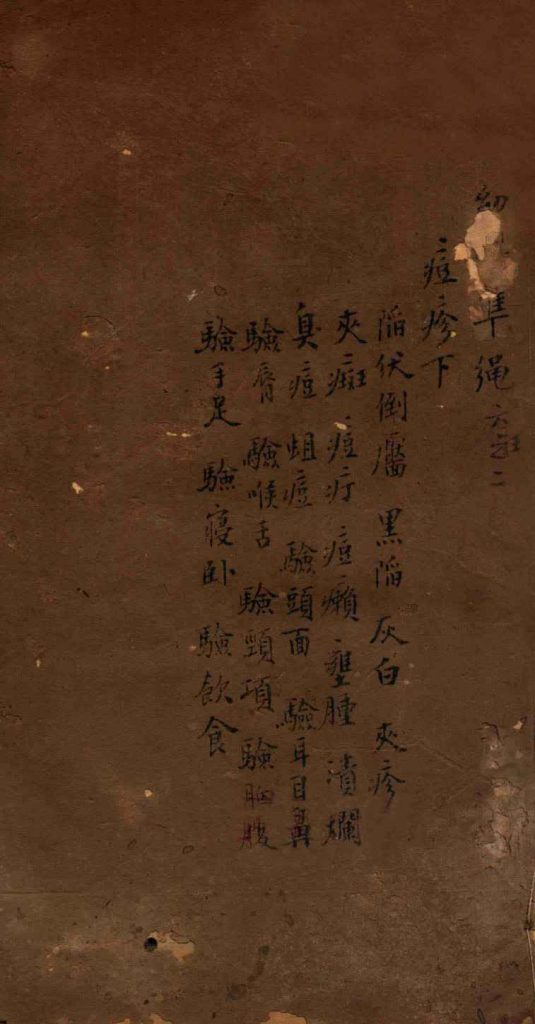 幼 準繩 二
痘疹下
陷伏倒靨 黑陷 灰白 夾疹
夾斑 痘疔 痘癩 壅腫 潰爛
臭痘 蛆痘 驗頭面 驗耳目鼻
驗脣 驗喉舌 驗頸項 驗胸腹
驗手足 驗寢卧 驗飲食